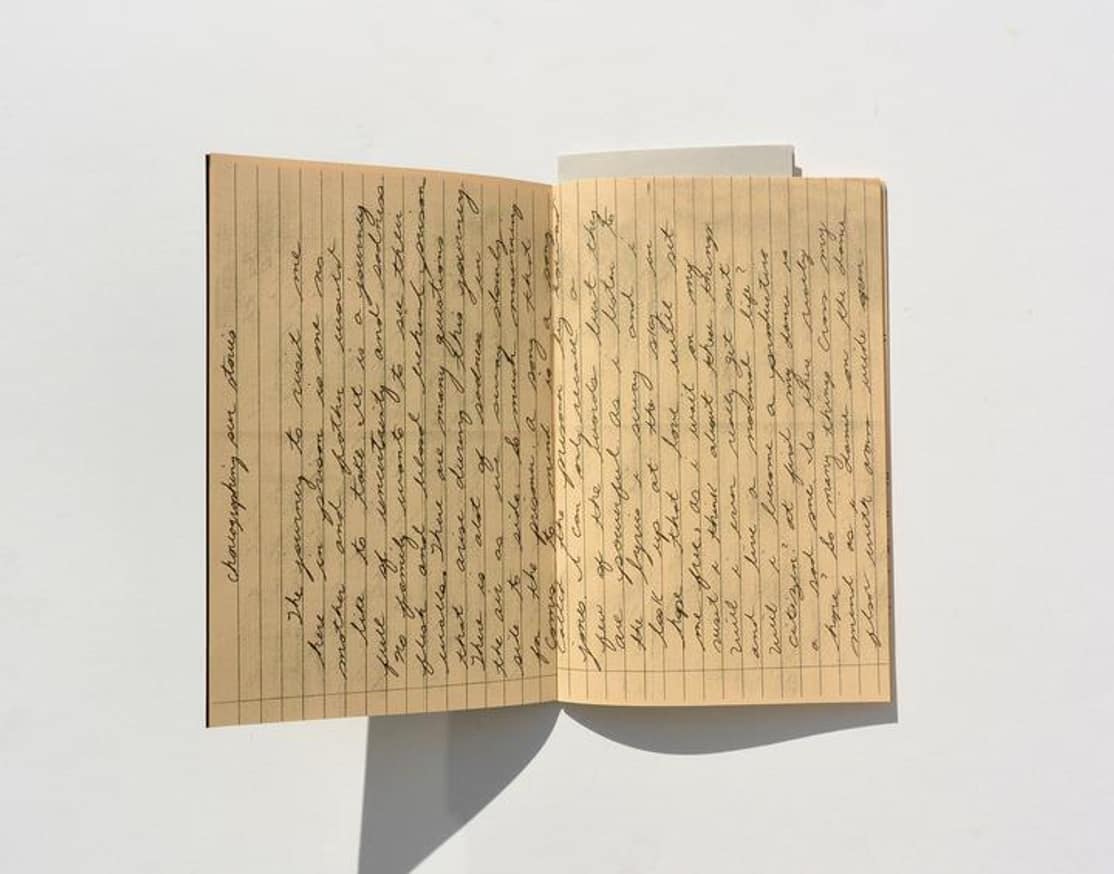 choreographing our stories
The journey to visit me
here in prison is one no
mother and father would
like to take. it is a journey
full of uncertainity and sadness.
No family wants to see their
flesh and blood behind prison
walls. There are many questions
that arise during this journey.
There is alot of sadness in
the air as we sway slowly
side to side. So much meaning
for the prisoner. a song that
Comes to mind is a song
Called the prison by
jones. i can only recall a
few of the words but they
are powerful as i listen to
the lyrics i sway and i
look up at the sky in
hope that love will set
me free. as i wait on my
visit i think about three things
Will i ever really get out
and live a normal life?
Will i become a productive
citizen? at first my dance is
a sad one is there really
hope? So many things cross my
mind as i dance on the dance
floor with arms wide open